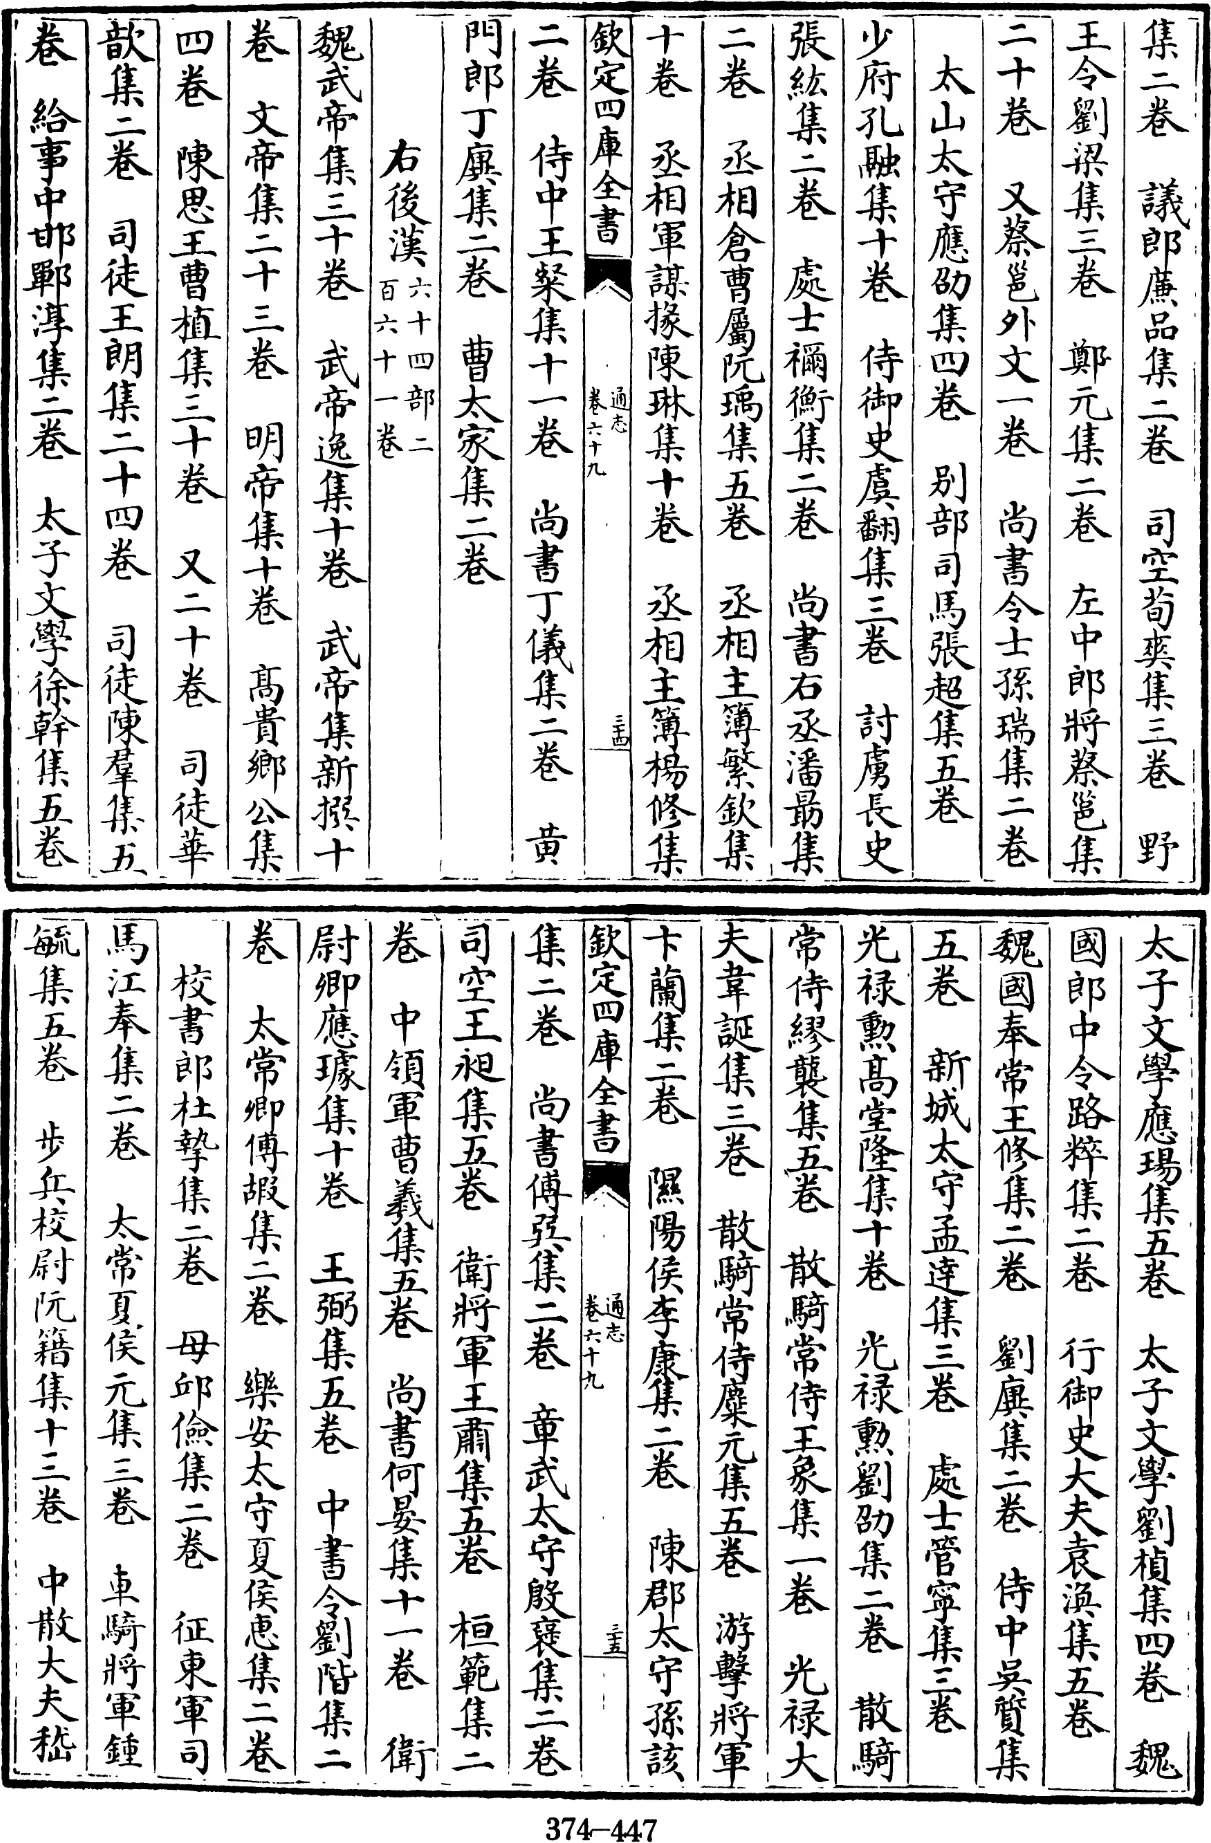 集二卷　議郎廉品集二卷　司空荀爽集三卷　野
王令劉梁集三卷　鄭元集二卷　左中郎將蔡邕集
二十卷　又蔡邕外文一卷　尚書令士孫瑞集二卷
太山太守應劭集四卷　别部司馬張超集五卷
少府孔融集十卷　侍御史虞翻集三卷　討虜長史
張紘集二卷　處士禰衡集二卷　尚書右丞潘勗集
二卷　丞相倉曹屬阮瑀集五卷　丞相主簿繁欽集
十卷　丞相軍謀掾陳琳集十卷　丞相主簿楊修集
欽定四庫全書　通志卷六十九　三十四
二卷　侍中王粲集十一卷　尚書丁儀集二卷　黄
門郎丁廙集二卷　曹大家集二卷
右後漢六十四部二百六十一卷
魏武帝集三十卷　武帝逸集十卷　武帝集新撰十
卷　文帝集二十三卷　明帝集十卷　髙貴鄉公集
四卷　陳思王曹植集三十卷　又二十卷　司徒華
歆集二卷　司徒王朗集二十四卷　司徒陳羣集五
卷　給事中邯鄲淳集二卷　太子文學徐幹集五卷
太子文學應瑒集五卷　太子文學劉楨集四卷　魏
國郎中令路粹集二卷　行御史大夫袁渙集五卷
魏國奉常王修集二卷　劉廙集二卷　侍中吳質集
五卷　新城太守孟達集三卷　處士管寧集三卷
光禄勲髙堂隆集十卷　光禄勲劉劭集二卷　散騎
常侍繆襲集五卷　散騎常侍王象集一卷　光禄大
夫韋誕集三卷　散騎常侍麋元集五卷　游擊將軍
卞蘭集二卷　隰陽侯李康集二卷　陳郡太守孫該
欽定四庫全書　通志卷六十九　三十五
集二卷　尚書傅巽集二卷　章武太守殷褒集二卷
司空王昶集五卷　衛將軍王肅集五卷　桓範集二
卷　中領軍曹羲集五卷　尚書何晏集十一卷　衛
尉卿應璩集十卷　王弼集五卷　中書令劉階集二
卷　太常卿傅嘏集二卷　樂安太守夏侯惠集二卷
校書郎杜摯集二卷　毋邱儉集二卷　征東軍司
馬江奉集二卷　太常夏侯元集三卷　車騎將軍鍾
毓集五卷　步兵校尉阮籍集十三卷　中散大夫嵇
374-447